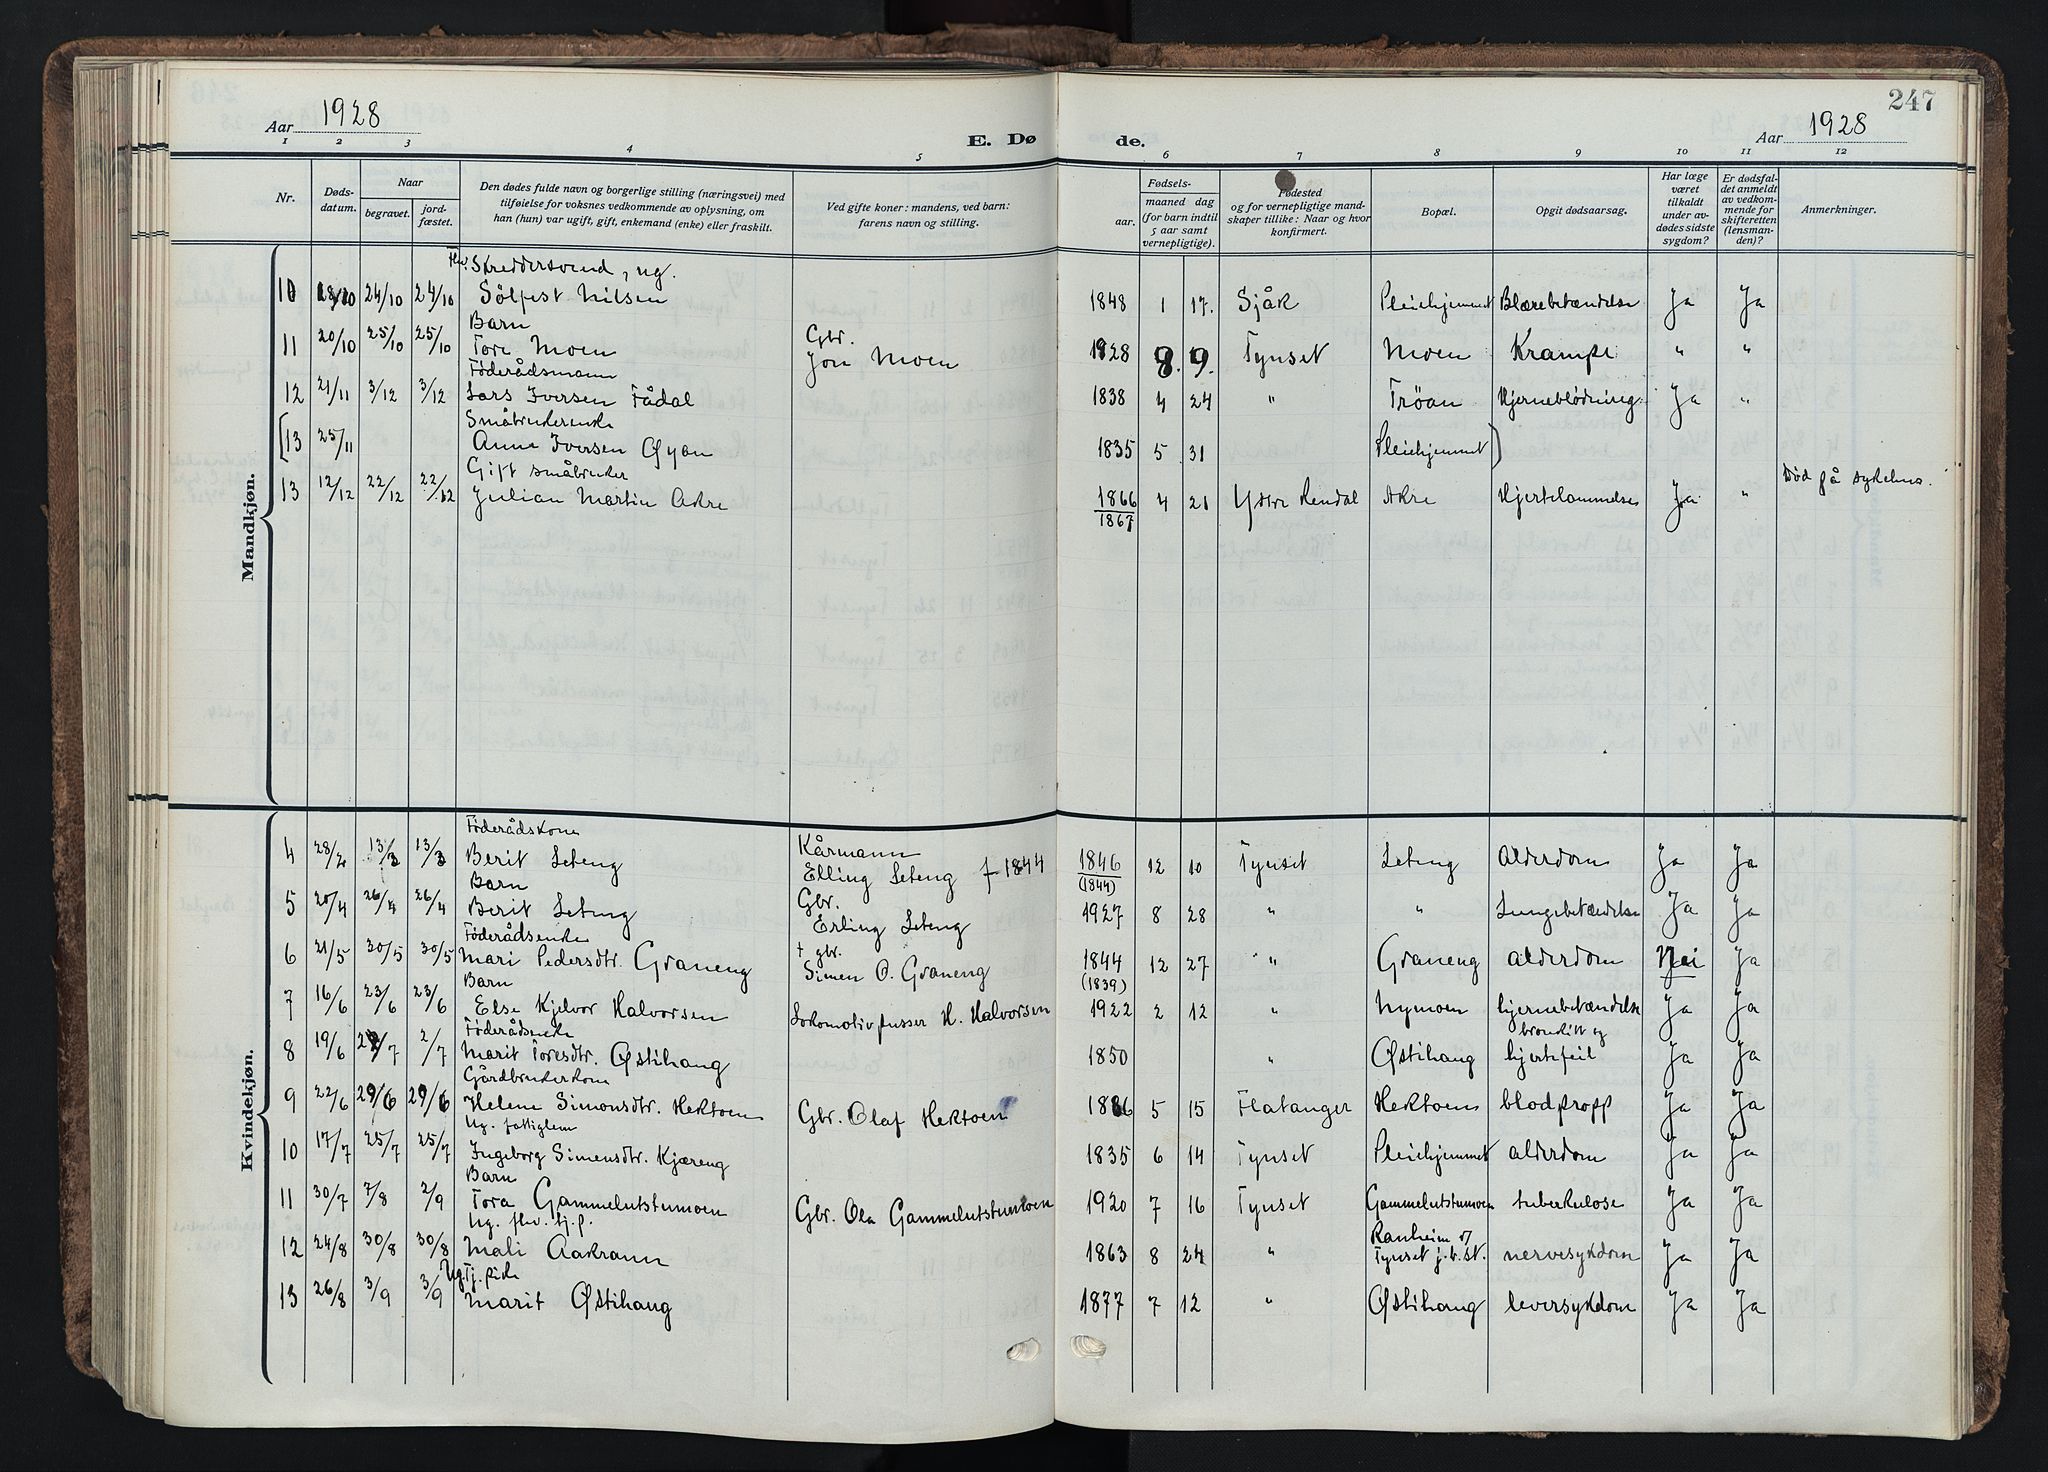 247
Aar 1928
E. Dø
de.
Aar 1928
1 2 3 4 5 6 7 8 9 10 11 12
Nr.
Døds-
datum.
Naar
begravet.
jord-
fæstet.
Den dødes fulde navn og borgerlige stilling (næringsvei) med
tilføielse for voksnes vedkommende av oplysning, om
han (hun) var ugift, gift, enkemand (enke) eller fraskilt.
Ved gifte koner: mandens, ved barn:
farens navn og stilling.
Fødsels-
aar.
maaned dag
(for barn indtil
5 aar samt
vernepligtige).
Fødested
og for vernepligtige mand-
skaper tillike: Naar og hvor
konfirmert.
Bopæl.
Opgit dødsaarsag.
Har læge
været
tilkaldt
under av-
dødes sidste
sygdom?
Er dødsfal-
det anmeldt
av vedkom-
mende for
skifteretten
(lensman-
den)?
Anmerkninger.
Mandkjøn.
Fhv. Skreddersvend, ug.
10 18/10 24/10 24/10 Sølfest Nilsen 1848 1 17. Sjåk Pleiehjemmet Blærebetændelse Ja Ja
Barn Gbr.
11 20/10 25/10 25/10 Tore Moen Jon Moen 1928 8. 9. Tynset Moen Krampe " "
Föderådsmann
12 21/11 3/12 3/12 Lars Iversen Fådal 1838 4 24 " Tröan Hjerneblödning Ja "
Småbrukerenke
[13 25/11 Anne Iversen Øyan 1835 5 31 Pleiehjemmet)
Gift småbruker
13 12/12 22/12 22/12 Julian Martin Akre 1866 4 21 Ytre Rendal Akre Hjertelammelse Ja " Död på sykehus.
1867
Kvindekjøn.
Föderådskone Kårmann
4 28/2 13/3 13/3 Berit Leteng Elling Leteng f 1844 1846 12 10 Tynset Leteng Alderdom Ja Ja
(1844)
Barn Gbr.
5 20/4 26/4 26/4 Berit Leteng Erling Leteng 1927 8 28 " " Lungebetændelse Ja Ja
Föderådsenke + gbr.
6 21/5 30/5 30/5 Mari Pedersdtr. Graneng Simen O. Graneng 1844 12 27 " Graneng alderdom Nei Ja
(1839)
Barn
7 16/6 23/6 23/6 Else Kjelvor Halvorsen Lokomotivpusser H. Halvorsen 1922 2 12 " Nymoen hjernebetændelse Ja Ja
Föderådsenke bronkitt og
8 19/6 2/7 2/7 Marit Toresdtr. Østihang 1850 " Østihang hjertefeil Ja Ja
Gårdbrukerkone
9 22/6 29/6 29/6 Helene Simonsdtr. Hektoen Gbr. Olaf Hektoen 1886 5 15 Flatanger Hektoen blodpropp Ja Ja
Ug. fattiglem
10 17/7 25/7 25/7 Ingeborg Simensdtr. Kjæreng 1835 6 14 Tynset Pleiehjemmet alderdom Ja Ja
Barn
11 30/7 7/8 2/9 Tora Gammelutstumoen Gbr. Ola Gammelutstumoen 1920 7 16 Tynset Gammelutstumoen tuberkulose Ja Ja
Ug. fhv. tj.p. Ranheim v/
12 24/8 30/8 30/8 Mali Aakrann 1863 8 24 " Tynset j.b.st. nervesykdom Ja Ja
Ug. Tj. pike
13 26/8 3/9 3/9 Marit Østihang 1877 7 12 " Østihang leversykdom Ja Ja